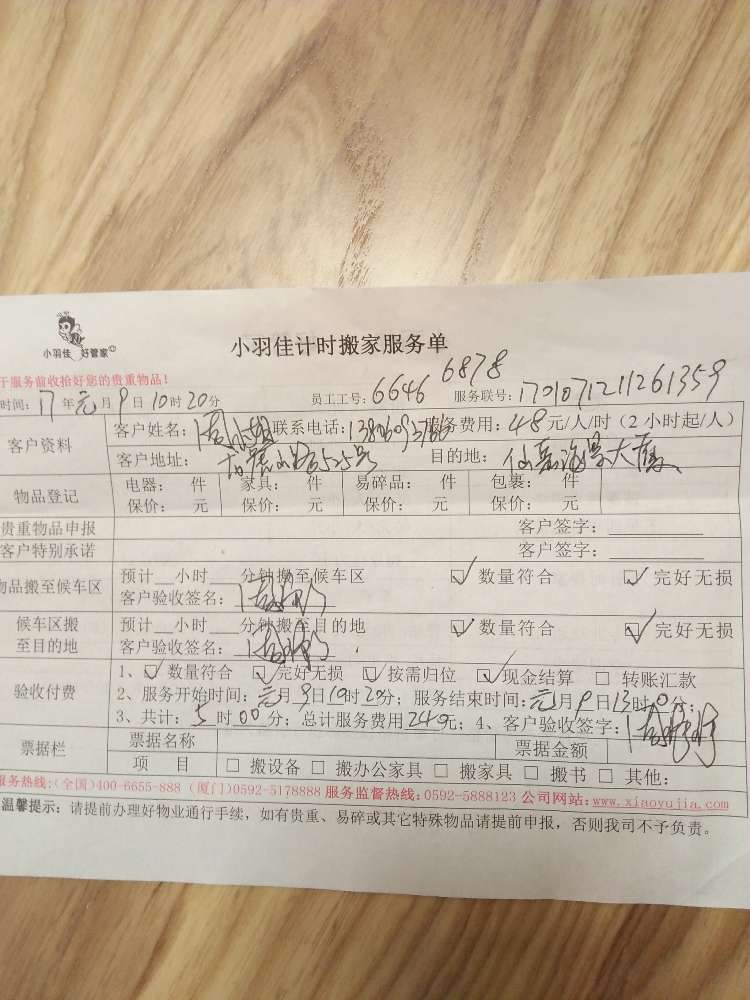 小羽佳 好管家
小羽佳计时搬家服务单
于服务前收拾好您的贵重物品!
6878
时间: 17 年 元 月 9 日 10 时 20 分 员工工号: 6646 服务联号: 1701071211261359
客户资料
客户姓名: 联系电话: 服务费用: 48 元/人/时 (2 小时起/人)
客户地址: 目的地: 仙岳海景大厦
物品登记
电器: 件 家具: 件 易碎品: 件 包裹: 件
保价: 元 保价: 元 保价: 元 保价: 元
贵重物品申报 客户签字:
客户特别承诺 客户签字:
物品搬至候车区
预计__小时___分钟搬至候车区 数量符合 完好无损
客户验收签名:
候车区搬
至目的地
预计__小时___分钟搬至目的地 数量符合 完好无损
客户验收签名:
验收付费
1、 数量符合 完好无损 按需归位 现金结算 转账汇款
2、服务开始时间: 元 月 9 日 10 时 20 分; 服务结束时间: 元 月 9 日 13 时 分;
3、共计: 5 时 00 分; 总计服务费用 240 元; 4、客户验收签字:
票据栏
票据名称 票据金额
项 目 搬设备 搬办公家具 搬家具 搬书 其他:
服务热线:(全国)400-6655-888 (厦门)0592-5178888 服务监督热线:0592-5888123 公司网站:www.xiaoyujia.com
温馨提示: 请提前办理好物业通行手续, 如有贵重、易碎或其它特殊物品请提前申报, 否则我司不予负责。